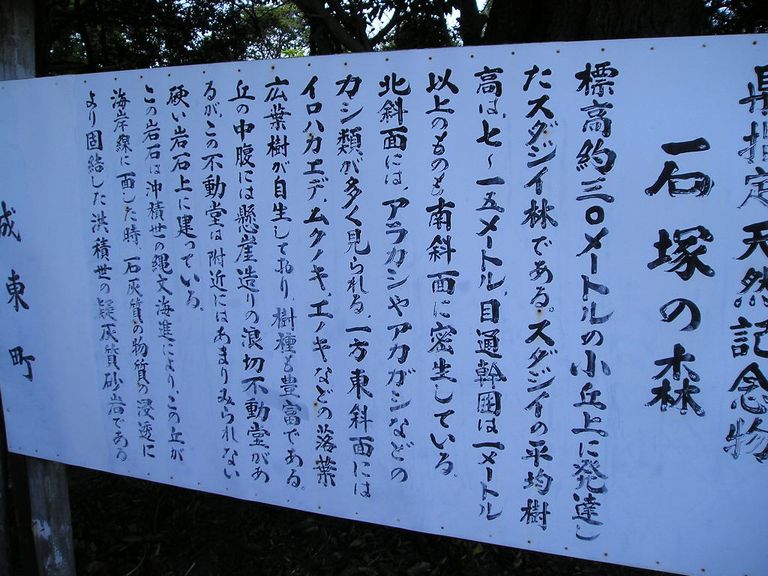 県指定天然記念物
石塚の森
標高約三〇メートルの小丘上に発達し
たスダジイ林である。スダジイの平均樹
高は、七〜一五メートル、目通幹囲は一メートル
以上のものも南斜面に密生している。
北斜面には、アラカシやアカガシなどの
カシ類が多く見られる。一方東斜面には
イロハカエデ、ムクノキ、エノキなどの落葉
広葉樹が自生しており、樹種も豊富である。
丘の中腹には懸崖造りの浪切不動堂があ
るが、この不動堂は附近にはあまりみられない
硬い岩石上に建っている。
この岩石は沖積世の縄文海進により、この丘が
海岸線に面した時、石灰質の物質の浸透に
より固結した洪積世の凝灰質砂岩である
成東町